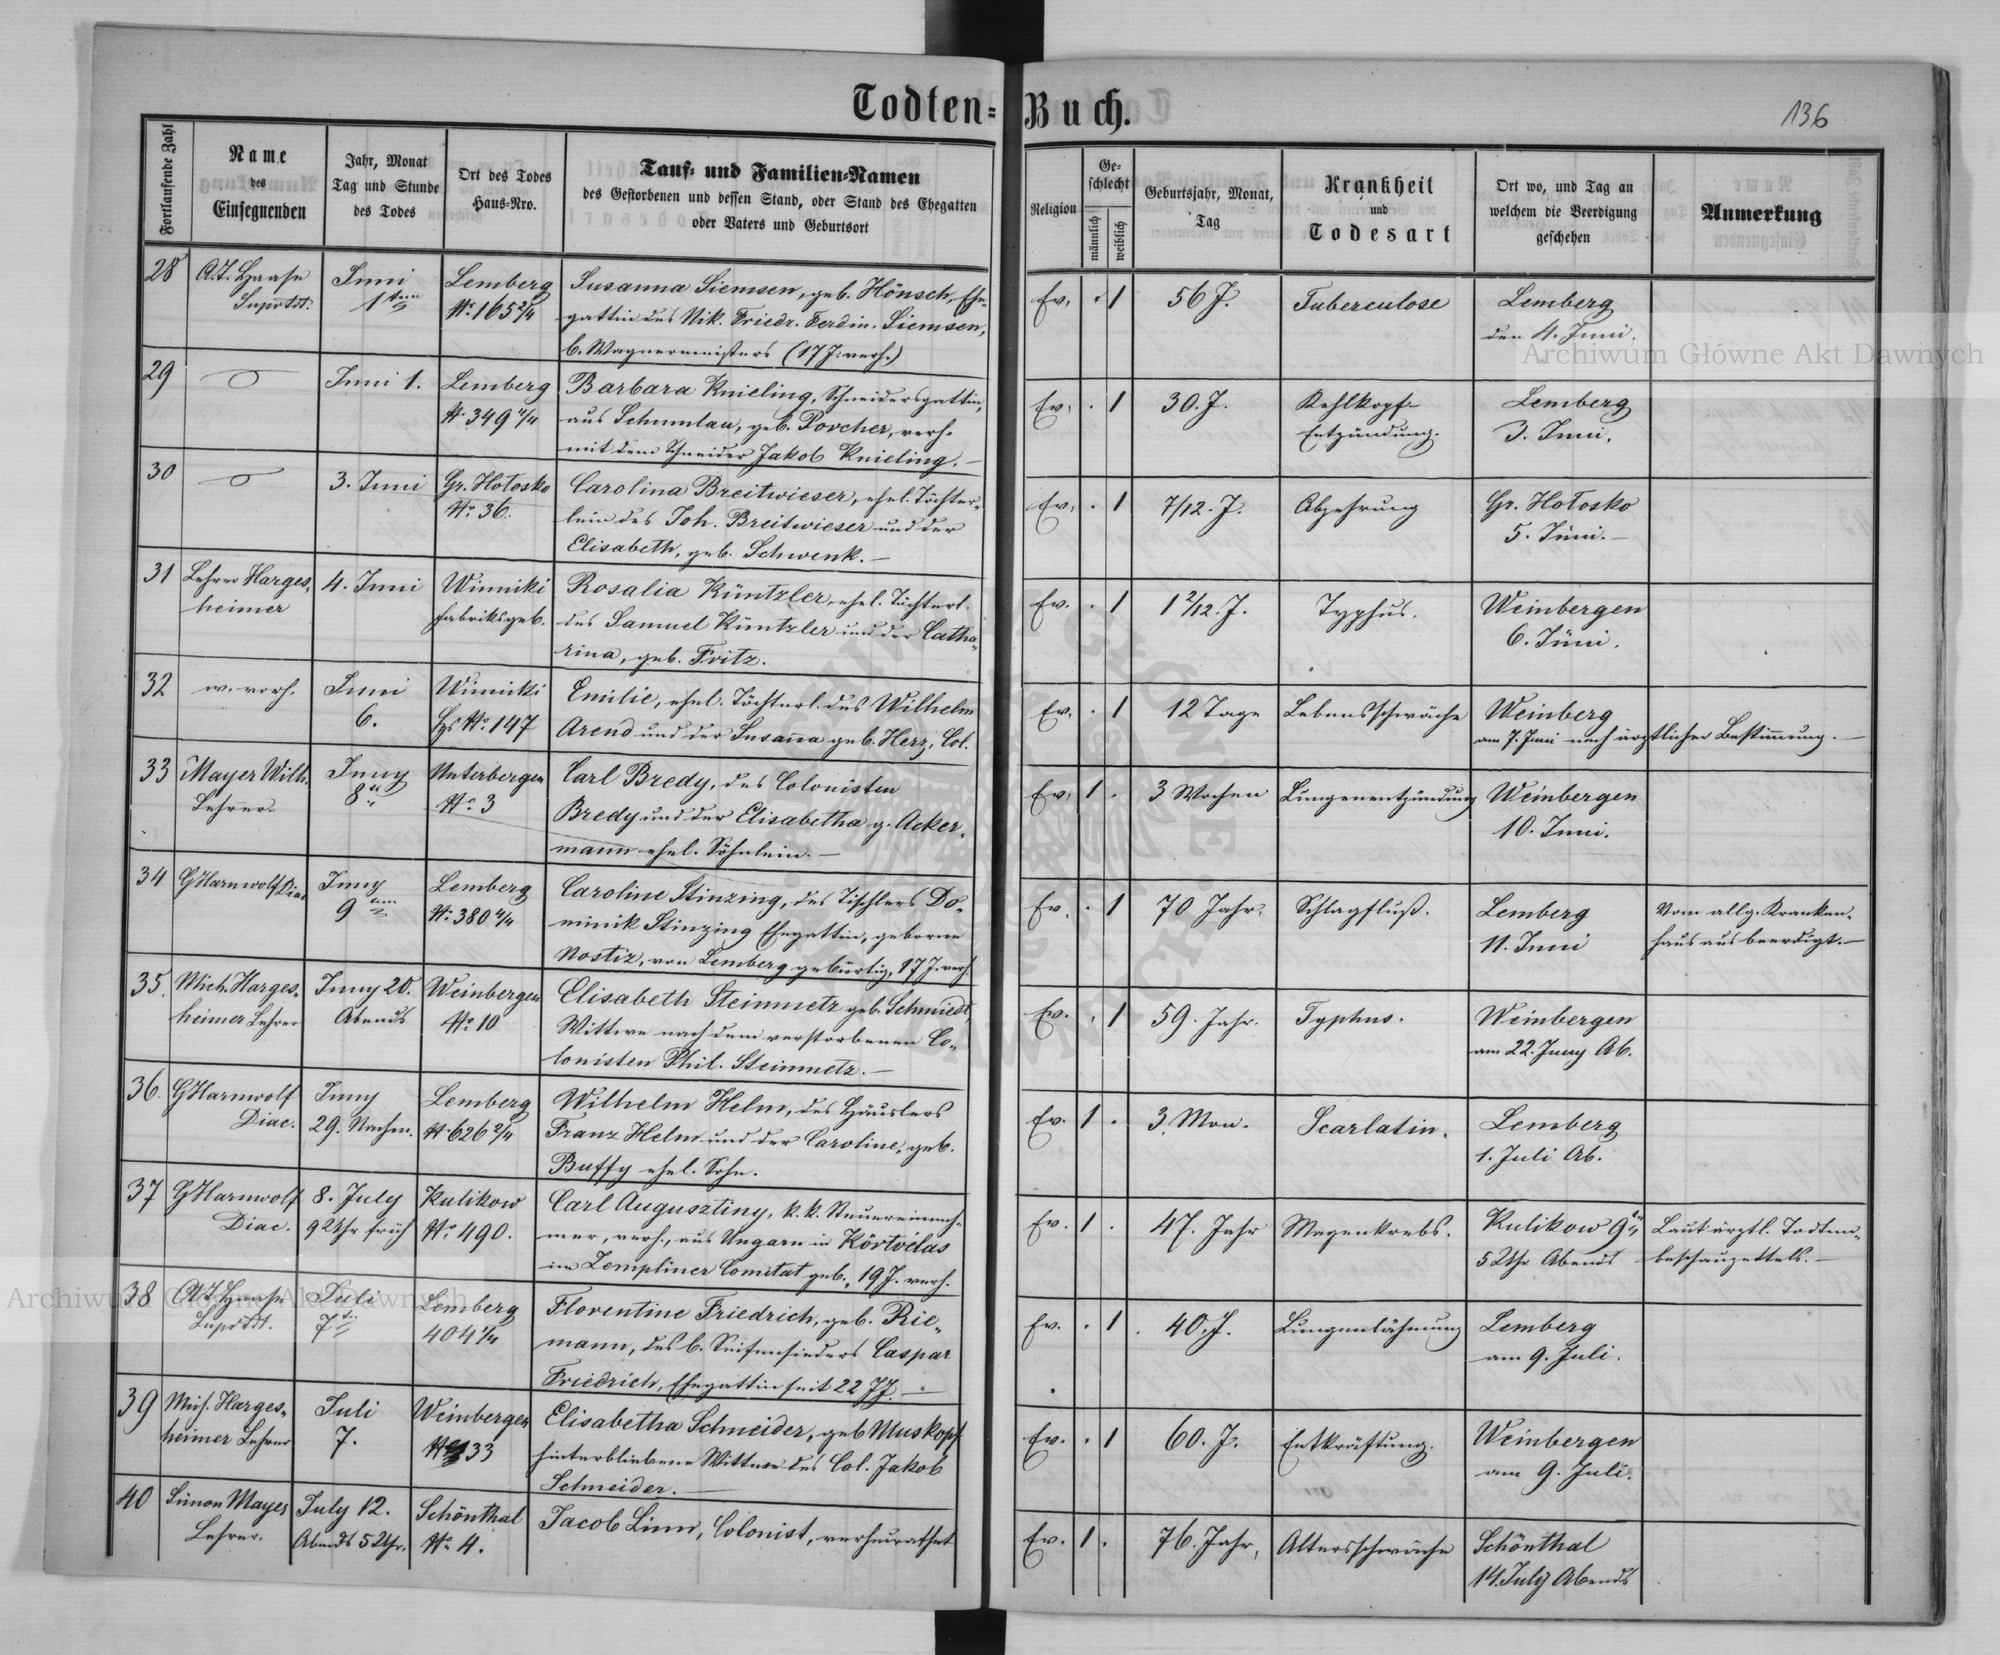 Todten-Buch.
136
Fortlaufende Zahl
Name
des
Einsegnenden
Jahr, Monat
Tag und Stunde
des Todes
Ort des Todes
Haus-Nro.
Tauf- und Familien-Namen
des Gestorbenen und dessen Stand, oder Stand des Ehegatten
oder Vaters und Geburtsort
Religion
Ge-
schlecht
männlich
weiblich
Geburtsjahr, Monat,
Tag
Krankheit
und
Todesart
Ort wo, und Tag an
welchem die Beerdigung
geschehen
Anmerkung
28
Haase
Juni
1
Lemberg
No. 165 2/4
Susanna Siemsen, geb. Hönsch, Ehe-
gattin des Nik. Friedr. Ferdin. Siemsen,
b. Wagnermeisters (17 J. verh.)
Ev. . 1
56 J.
Tuberculose
Lemberg
den 4. Juni.
29
Juni 1.
Lemberg
No. 349 4/4
Barbara Knieling, Schneidersgattin,
aus Schumlau, geb. Porcher, verh.
mit dem Schneider Jakob Knieling. —
Ev. . 1
30. J.
Kehlkopf-
Entzündung.
Lemberg
3. Juni.
30
3. Juni
Gr. Hołosko
No. 36.
Carolina Breitwieser, ehel. Töchter-
lein des Joh. Breitwieser und der
Elisabeth, geb. Schwenk. —
Ev. . 1
7/12. J.
Abzehrung
Gr. Hołosko
5. Juni. —
31
Lehrer Harges-
heimer
4. Juni
Winniki
Fabriksgeb.
Rosalia Küntzler, ehel. Töchterl.
des Samuel Küntzler und der Catha-
rina, geb. Fritz.
Ev. . 1
1 2/12. J.
Typhus.
Weinbergen
6. Juni.
32
w. vorh.
Juni
6.
Winniki
Hs No. 147
Emilie, ehel. Töchterl. des Wilhelm
Arend und der Susanna geb. Herz, Col.
Ev. . 1
12 Tage
Lebensschwäche
Weinberg
am 7. Juni nach ärztlicher Bestimmung. —
33
Mayer Wilh.
Lehrer.
Juny
8
Unterbergen
No. 3
Carl Bredy, des Colonisten
Bredy und der Elisabetha g. Acker-
mann ehel. Söhnlein. —
Ev. 1 .
3 Wochen
Lungenentzündung
Weinbergen
10. Juni.
34
GHarnwolf Diac
Juny
9
Lemberg
No. 380 4/4
Caroline Stinzing, des Tischlers Do-
minik Stinzing Ehegattin, geborne
Nostiz, von Lemberg gebürtig, 17 J. verh.
Ev. . 1
70 Jahr.
Schlagfluß.
Lemberg
11. Juni
Vom allg. Kranken-
haus aus beerdigt. —
35.
Mich. Harges-
heimer Lehrer
Juny 20.
Abends
Weinbergen
No. 10
Elisabeth Steinmetz geb. Schmiedt,
Wittwe nach dem verstorbenen Co-
lonisten Phil. Steinmetz. —
Ev. . 1
59. Jahr.
Typhus.
Weinbergen
am 22. Juny Ab.
36.
GHarnwolf
Diac.
Juny
29. Nachm.
Lemberg
No. 626 2/4
Wilhelm Helm, des Häuslers
Franz Helm und der Caroline, geb.
Buffy ehel. Sohn.
Ev. 1 .
3 Mon.
Scarlatin.
Lemberg
1. Juli Ab.
37
GHarnwolf
Diac.
8. July
9 Uhr früh
Kulikow
No. 490.
Carl Augusztiny, k. k. Steuereinneh-
mer, verh., aus Ungarn in Körtvélas
im Zempliner Comitat geb., 19 J. verh.
Ev. 1 .
47. Jahr
Magenkrebs.
Kulikow 9
5 Uhr Abends
Laut ärztl. Todten-
beschauzettels. —
38
Haase
Juli
7
Lemberg
404 1/4
Florentine Friedrich, geb. Rie-
mann, des b. Seifensieders Caspar
Friedrich, Ehegattin seit 22 JJ. —
Ev. . 1
40. J.
Lungenlähmung
Lemberg
am 9. Juli.
39
Mich. Harges-
heimer Lehrer
Juli
7.
Weinbergen
No 33
Elisabetha Schneider, geb. Muskopf
hinterbliebene Wittwe des Col. Jakob
Schneider. —
Ev. . 1
60. J.
Entkräftung.
Weinbergen
am 9. Juli.
40
Simon Mayer
Lehrer.
July 12.
Abends 5 Uhr.
Schönthal
No. 4.
Jacob Linn, Colonist, verheirathet
Ev. 1 .
76. Jahr,
Altersschwäche
Schönthal
14. July Abends
Archiwum Główne Akt Dawnych
Archiwum Główne Akt Dawnych